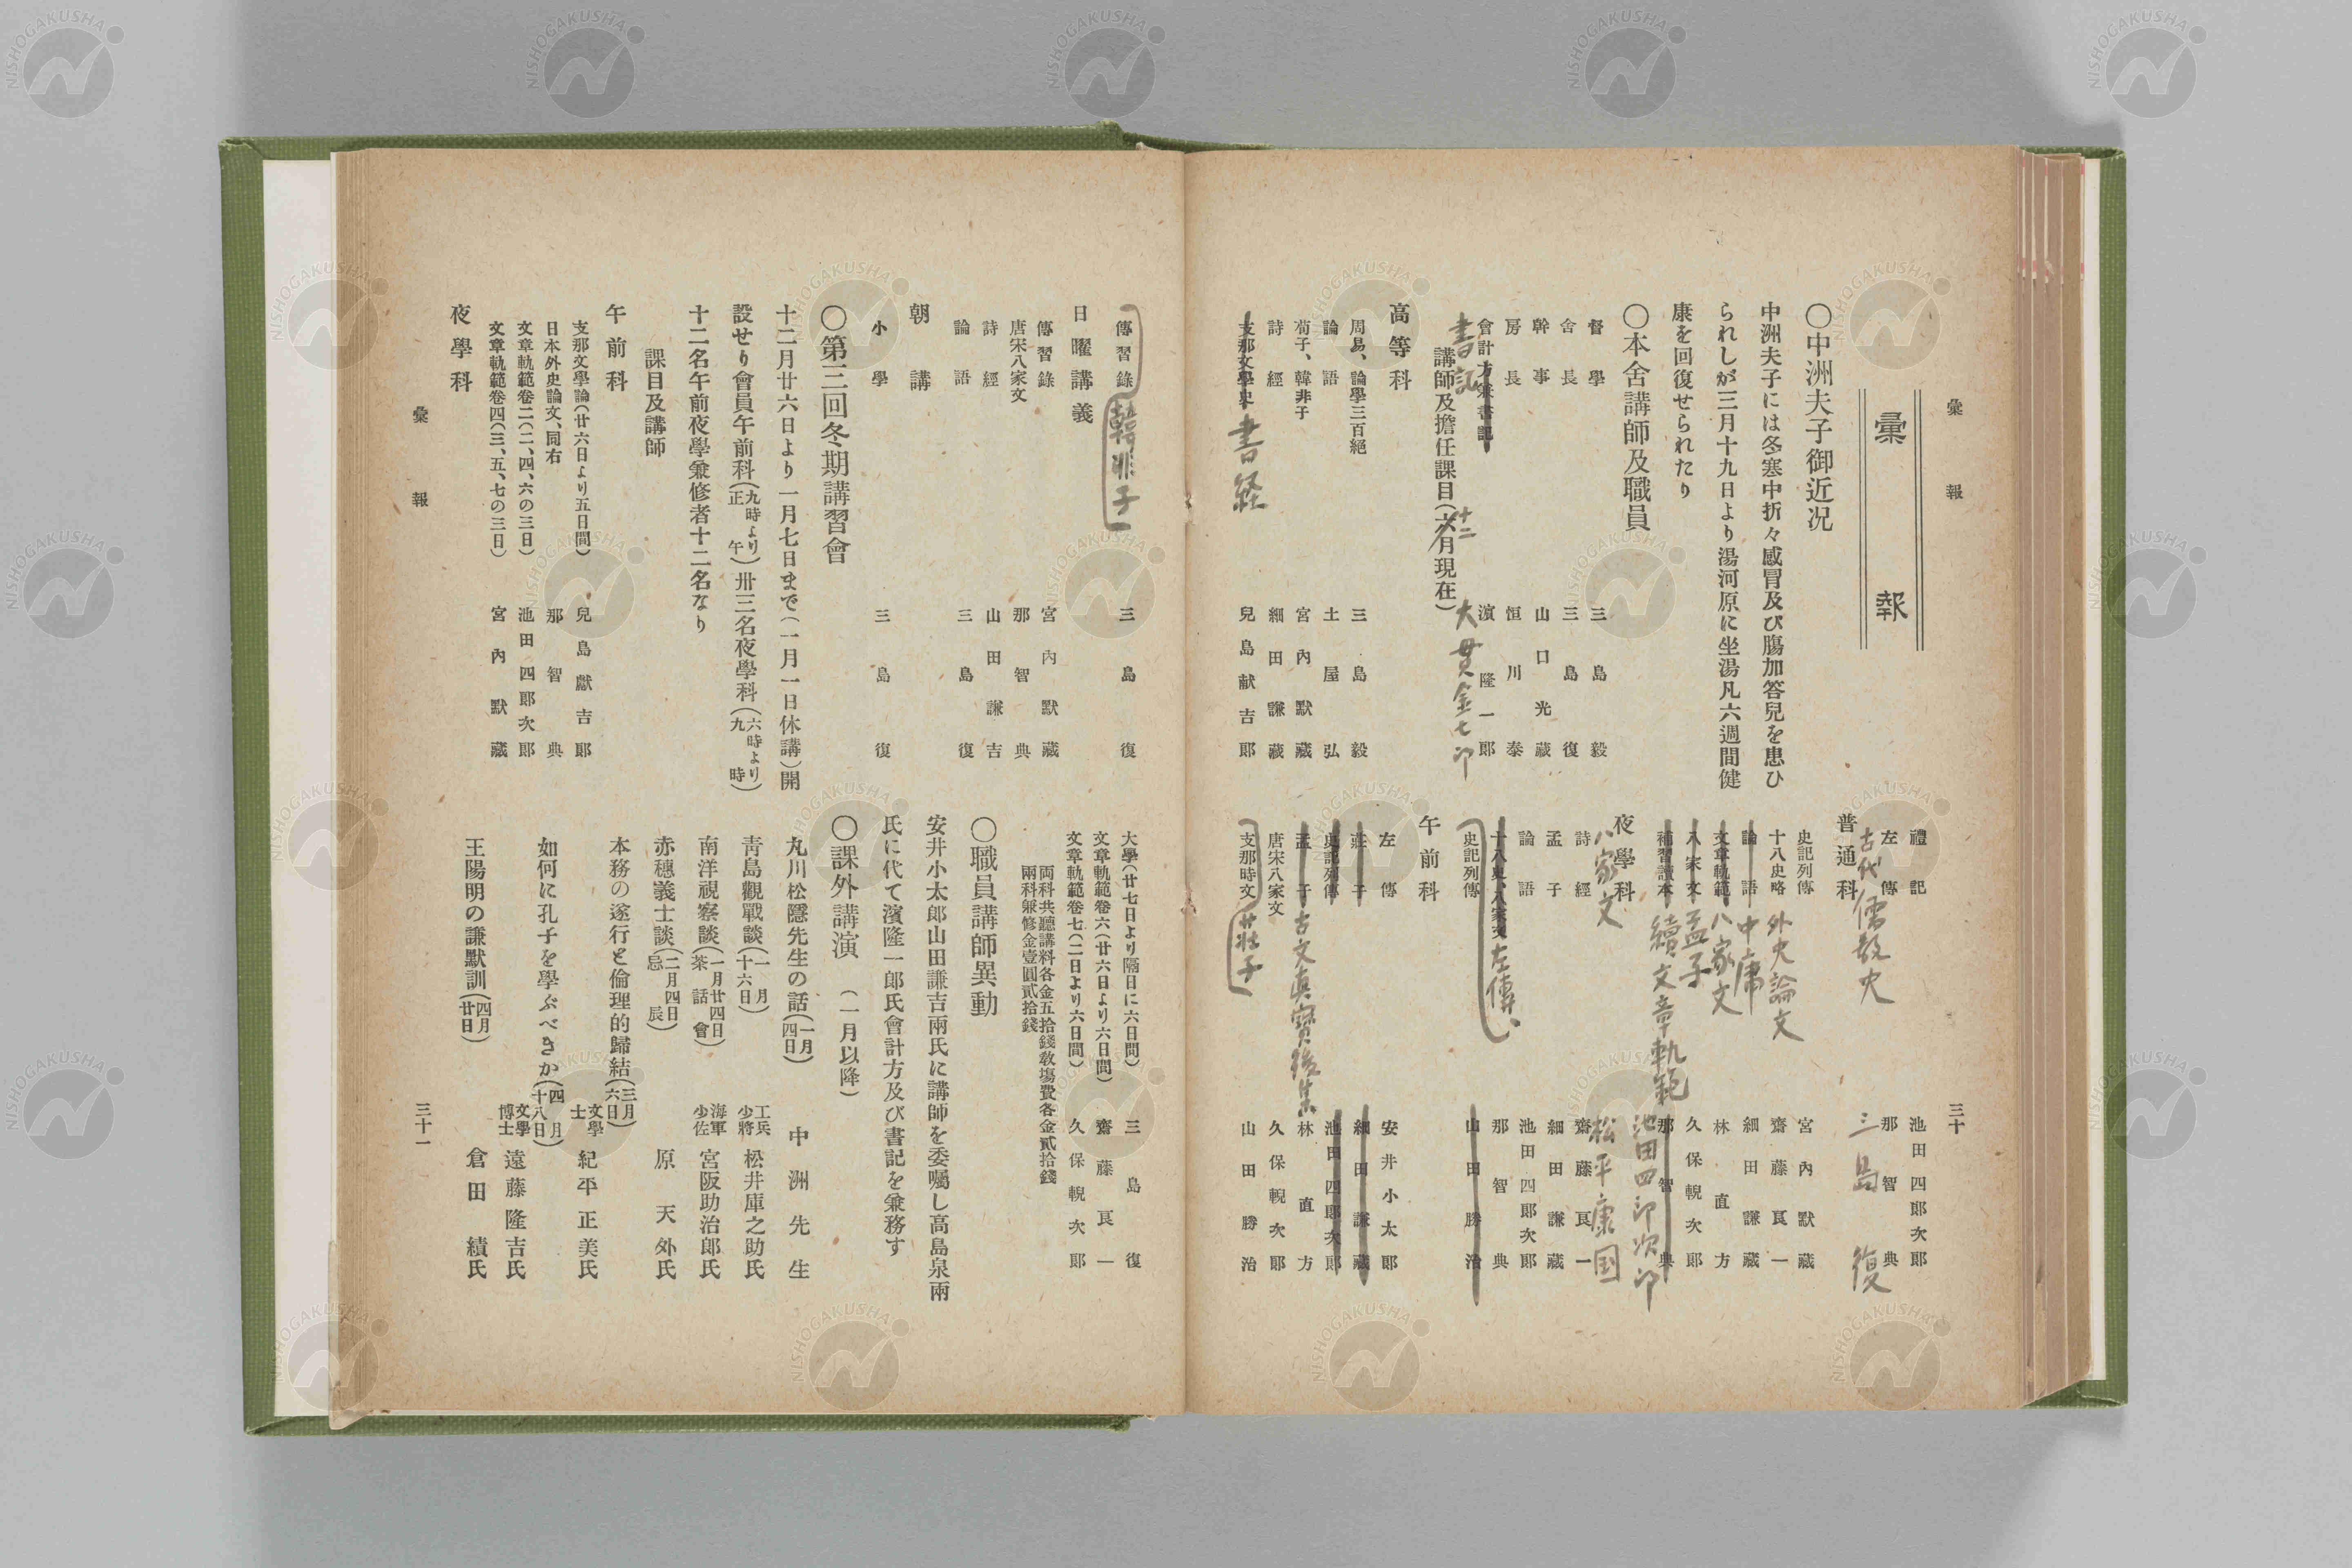 彙報
三十
彙報
〇中洲夫子御近況
中洲夫子には冬寒中折々感冒及び膓加答兒を患ひ
られしが三月十九日より湯河原に坐湯凡六週間健
康を回復せられたり
〇本舍講師及職員
督學 三島毅
舍長 三島復
幹事 山口光藏
房長 恒川泰
會計方兼書記 濱隆一郎
書記 大貫金七郎
講師及擔任課目(六月現在)
十二
高等科
周易、論學三百絕 三島毅
論語 土屋弘
荀子、韓非子 宮內默藏
詩經 細田謙藏
支那文學史 兒島献吉郎
書経
禮記 池田四郎次郎
左傳 那智典
古代儒敎史 三島復
普通科
史記列傳 宮內默藏
十八史略 齋藤良一
外史論文
論語 細田謙藏
中庸
文章軌範 林直方
八家文
八家文 久保輗次郎
孟子
補習讀本 那智典
續文章軌範 池田四郎次郎
夜學科
八家文 松平康国
詩經 齋藤良一
孟子 細田謙藏
論語 池田四郎次郎
十八史、八家文 那智典
左傳、
史記列傳 山田勝治
午前科
左傳 安井小太郎
莊子 細田謙藏
史記列傳 池田四郎次郎
孟子 林直方
古文眞寶後集
唐宋八家文 久保輗次郎
支那時文 山田勝治
莊子
傳習錄 三島復
韓非子
日曜講義
傳習錄 宮內默藏
唐宋八家文 那智典
詩經 山田謙吉
論語 三島復
朝講
小學 三島復
〇第三回冬期講習會
十二月廿六日より一月七日まで(一月一日休講)開
設せり會員午前科(九時より正午)卅三名夜學科(六時より九時)
十二名午前夜學兼修者十二名なり
課目及講師
午前科
支那文學論(廿六日より五日間) 兒島獻吉郎
日本外史論文、同右 那智典
文章軌範卷二(二、四、六の三日) 池田四郎次郎
文章軌範卷四(三、五、七の三日) 宮內默藏
夜學科
大學(廿七日より隔日に六日間) 三島復
文章軌範卷六(廿六日より六日間) 齋藤良一
文章軌範卷七(二日より六日間) 久保輗次郎
両科共聽講料各金五拾錢敎塲費各金貳拾錢
兩科兼修金壹圓貳拾錢
〇職員講師異動
安井小太郎山田謙吉兩氏に講師を委囑し高島泉兩
氏に代て濱隆一郎氏會計方及び書記を兼務す
〇課外講演 (一月以降)
丸川松隱先生の話(一月四日) 中洲先生
靑島觀戰談(一月十六日) 工兵少將 松井庫之助氏
南洋視察談(一月廿四日茶話會) 海軍少佐 宮阪助治郎氏
赤穗義士談(二月四日忌辰) 原天外氏
本務の遂行と倫理的歸結(三月六日) 文學士 紀平正美氏
如何に孔子を學ぶべきか(四月十八日) 文學博士 遠藤隆吉氏
王陽明の謙默訓(四月廿日) 倉田績氏
彙報
三十一